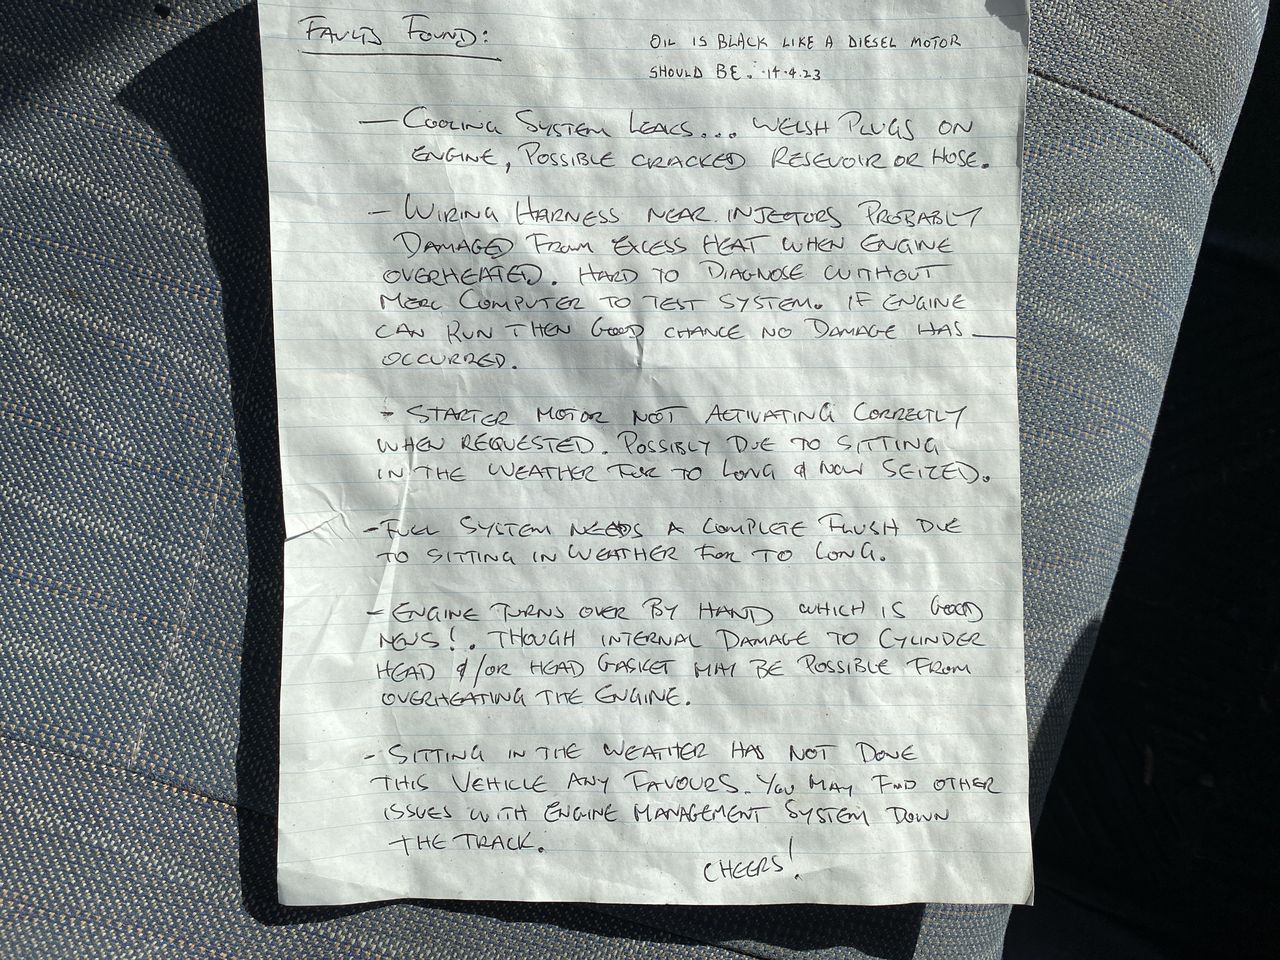 FAULTS FOUND:
OIL IS BLACK LIKE A DIESEL MOTOR
SHOULD BE. 14.4.23
— COOLING SYSTEM LEAKS... WELSH PLUGS ON
ENGINE, POSSIBLE CRACKED RESEVOIR OR HOSE.
- WIRING HARNESS NEAR INJECTORS PROBABLY
DAMAGED FROM EXCESS HEAT WHEN ENGINE
OVERHEATED. HARD TO DIAGNOSE WITHOUT
MERC COMPUTER TO TEST SYSTEM. IF ENGINE
CAN RUN THEN GOOD CHANCE NO DAMAGE HAS
OCCURRED.
- STARTER MOTOR NOT ACTIVATING CORRECTLY
WHEN REQUESTED. POSSIBLY DUE TO SITTING
IN THE WEATHER FOR TO LONG & NOW SEIZED.
- FUEL SYSTEM NEEDS A COMPLETE FLUSH DUE
TO SITTING IN WEATHER FOR TO LONG.
- ENGINE TURNS OVER BY HAND WHICH IS GOOD
NEWS!. THOUGH INTERNAL DAMAGE TO CYLINDER
HEAD &/OR HEAD GASKET MAY BE POSSIBLE FROM
OVERHEATING THE ENGINE.
- SITTING IN THE WEATHER HAS NOT DONE
THIS VEHICLE ANY FAVOURS. YOU MAY FIND OTHER
ISSUES WITH ENGINE MANAGEMENT SYSTEM DOWN
THE TRACK.
CHEERS!